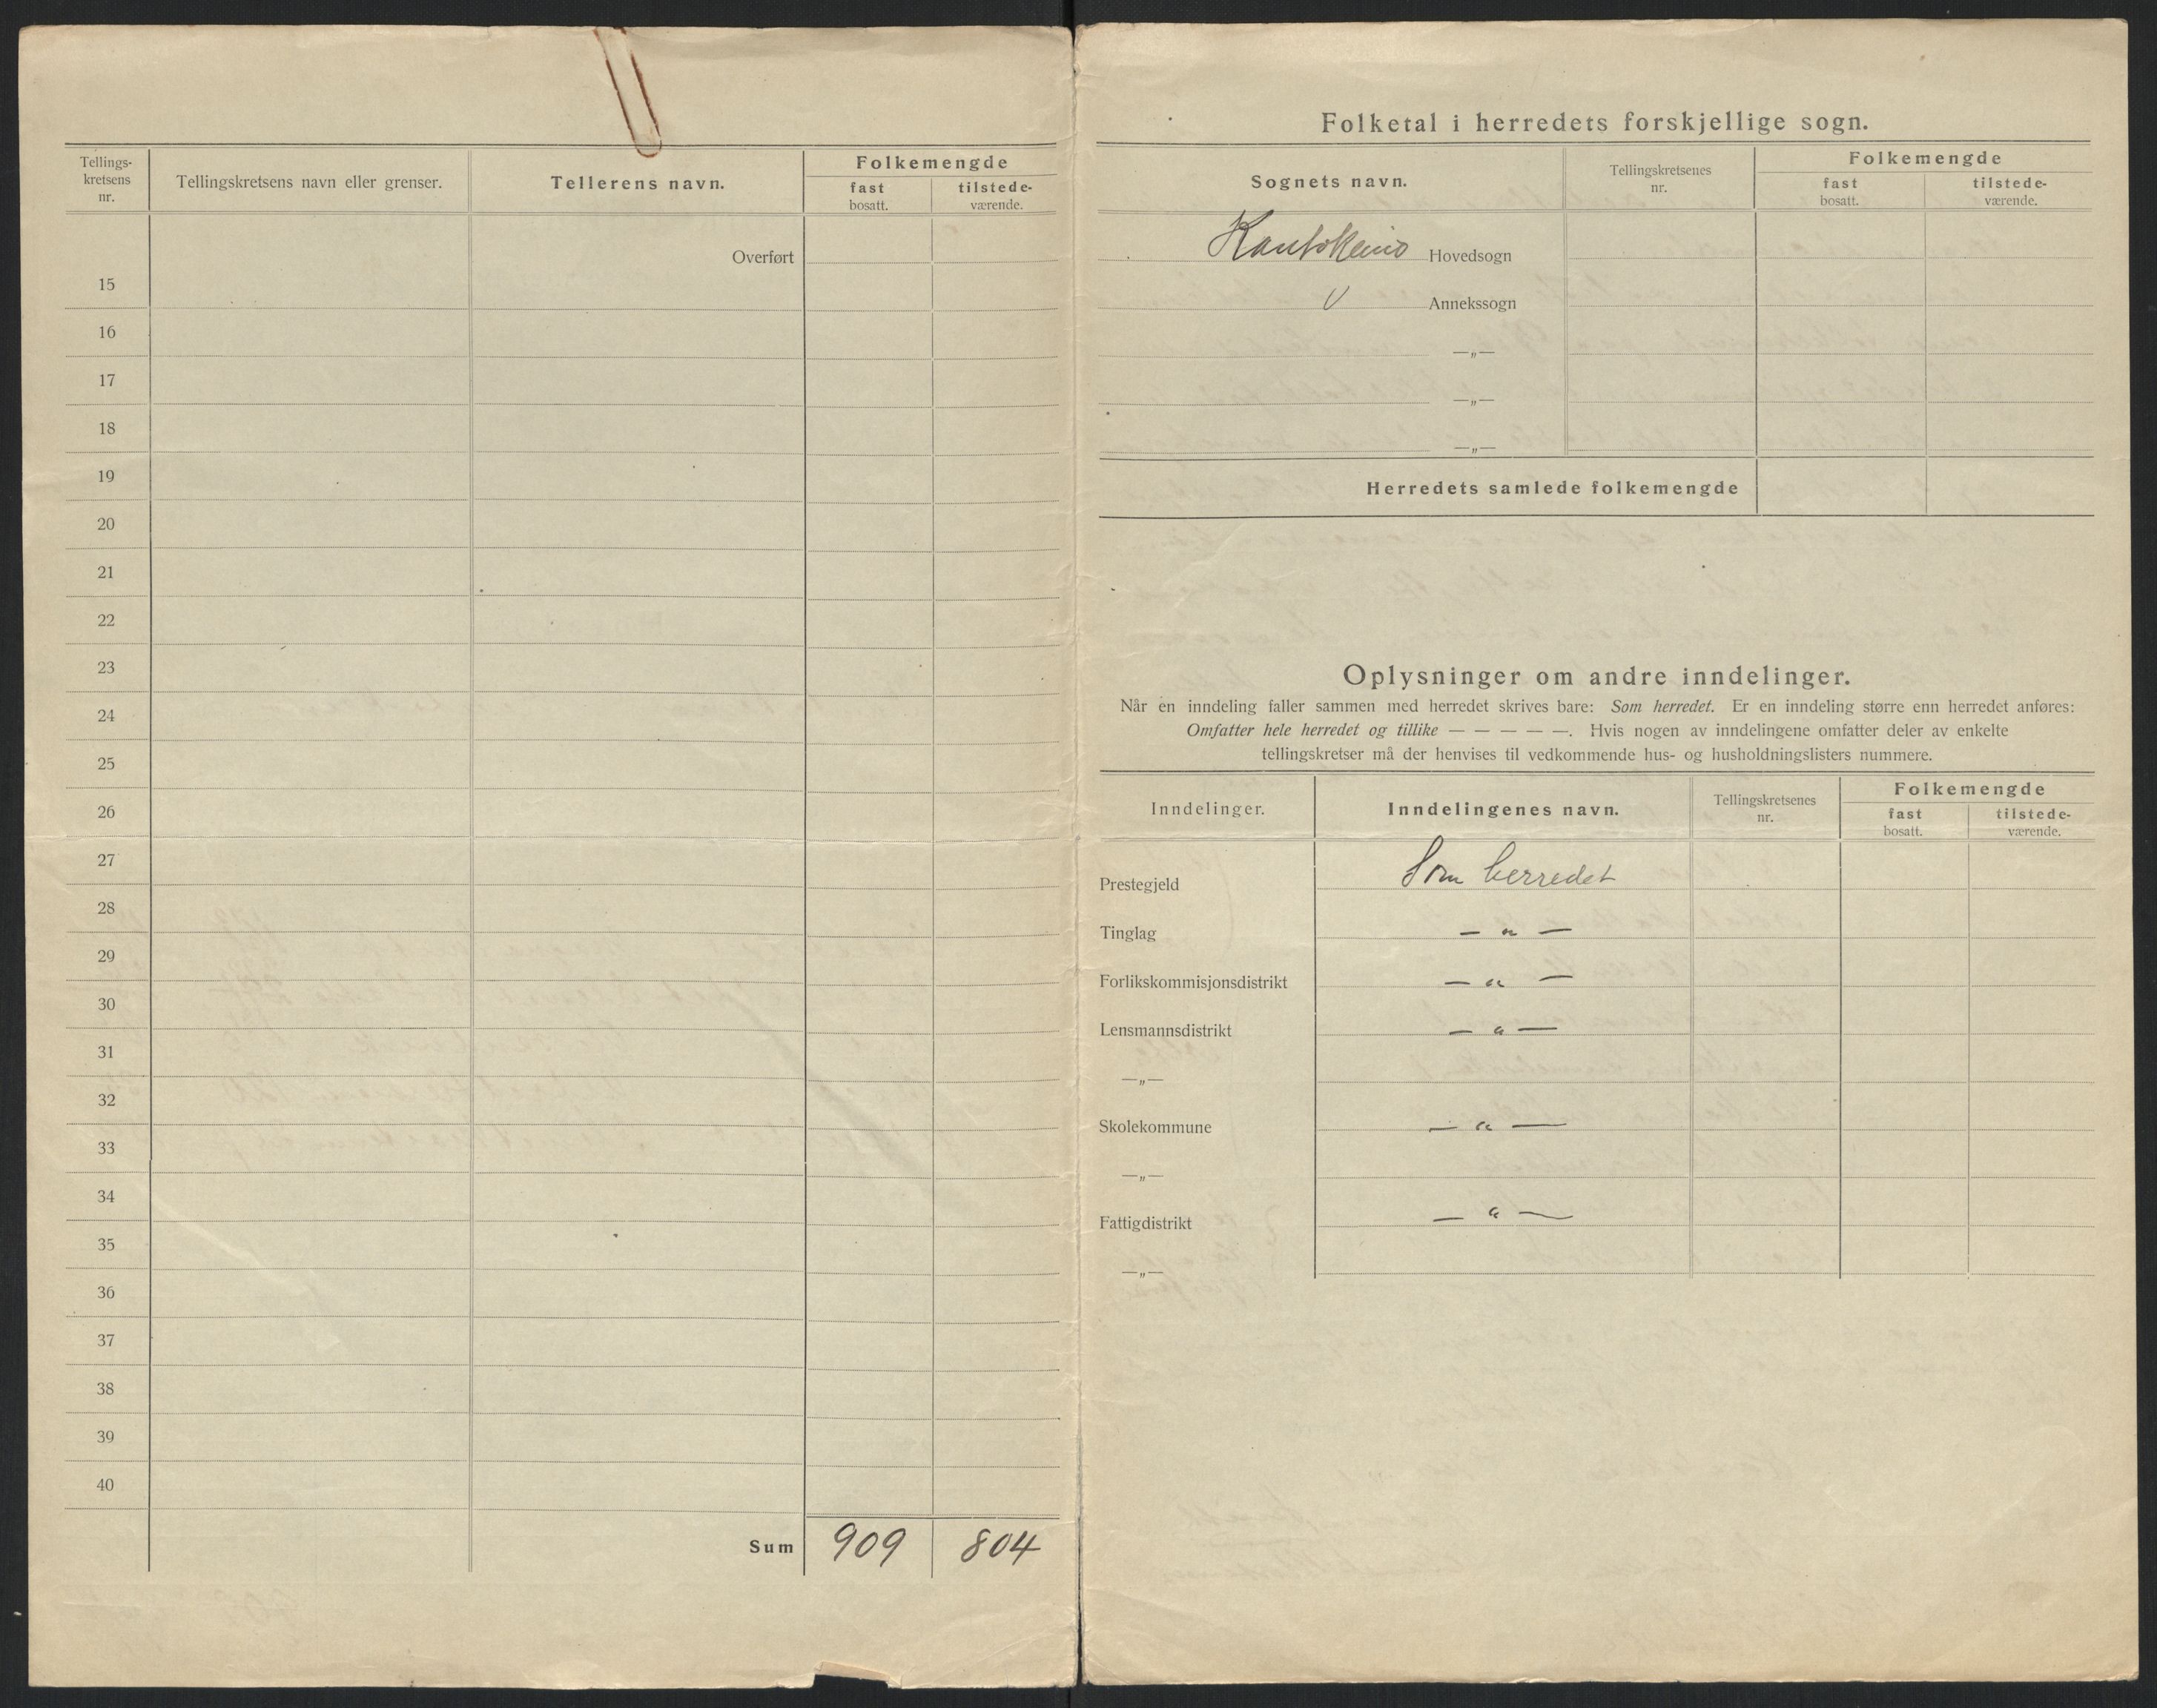 Tellings-
kretsens
nr.
Tellingskretsens navn eller grenser.
Tellerens navn.
Folkemengde
fast
bosatt.
tilstede-
værende.
Overført
15
16
17
18
19
20
21
22
23
24
25
26
27
28
29
30
31
32
33
34
35
36
37
38
39
40
Sum 909 804
Folketal i herredets forskjellige sogn.
Sognets navn.
Tellingskretsenes
nr.
Folkemengde
fast
bosatt.
tilstede-
værende.
Kautokeino Hovedsogn
Annekssogn
—„—
—„—
—„—
Herredets samlede folkemengde
Oplysninger om andre inndelinger.
Når en inndeling faller sammen med herredet skrives bare: Som herredet. Er en inndeling større enn herredet anføres:
Omfatter hele herredet og tillike — — — — —. Hvis nogen av inndelingene omfatter deler av enkelte
tellingskretser må der henvises til vedkommende hus- og husholdningslisters nummere.
Inndelinger.
Inndelingenes navn.
Tellingskretsenes
nr.
Folkemengde
fast
bosatt.
tilstede-
værende.
Prestegjeld Som herredet
Tinglag — „ —
Forlikskommisjonsdistrikt — „ —
Lensmannsdistrikt — „ —
—„—
Skolekommune — „ —
—„—
Fattigdistrikt — „ —
—„—